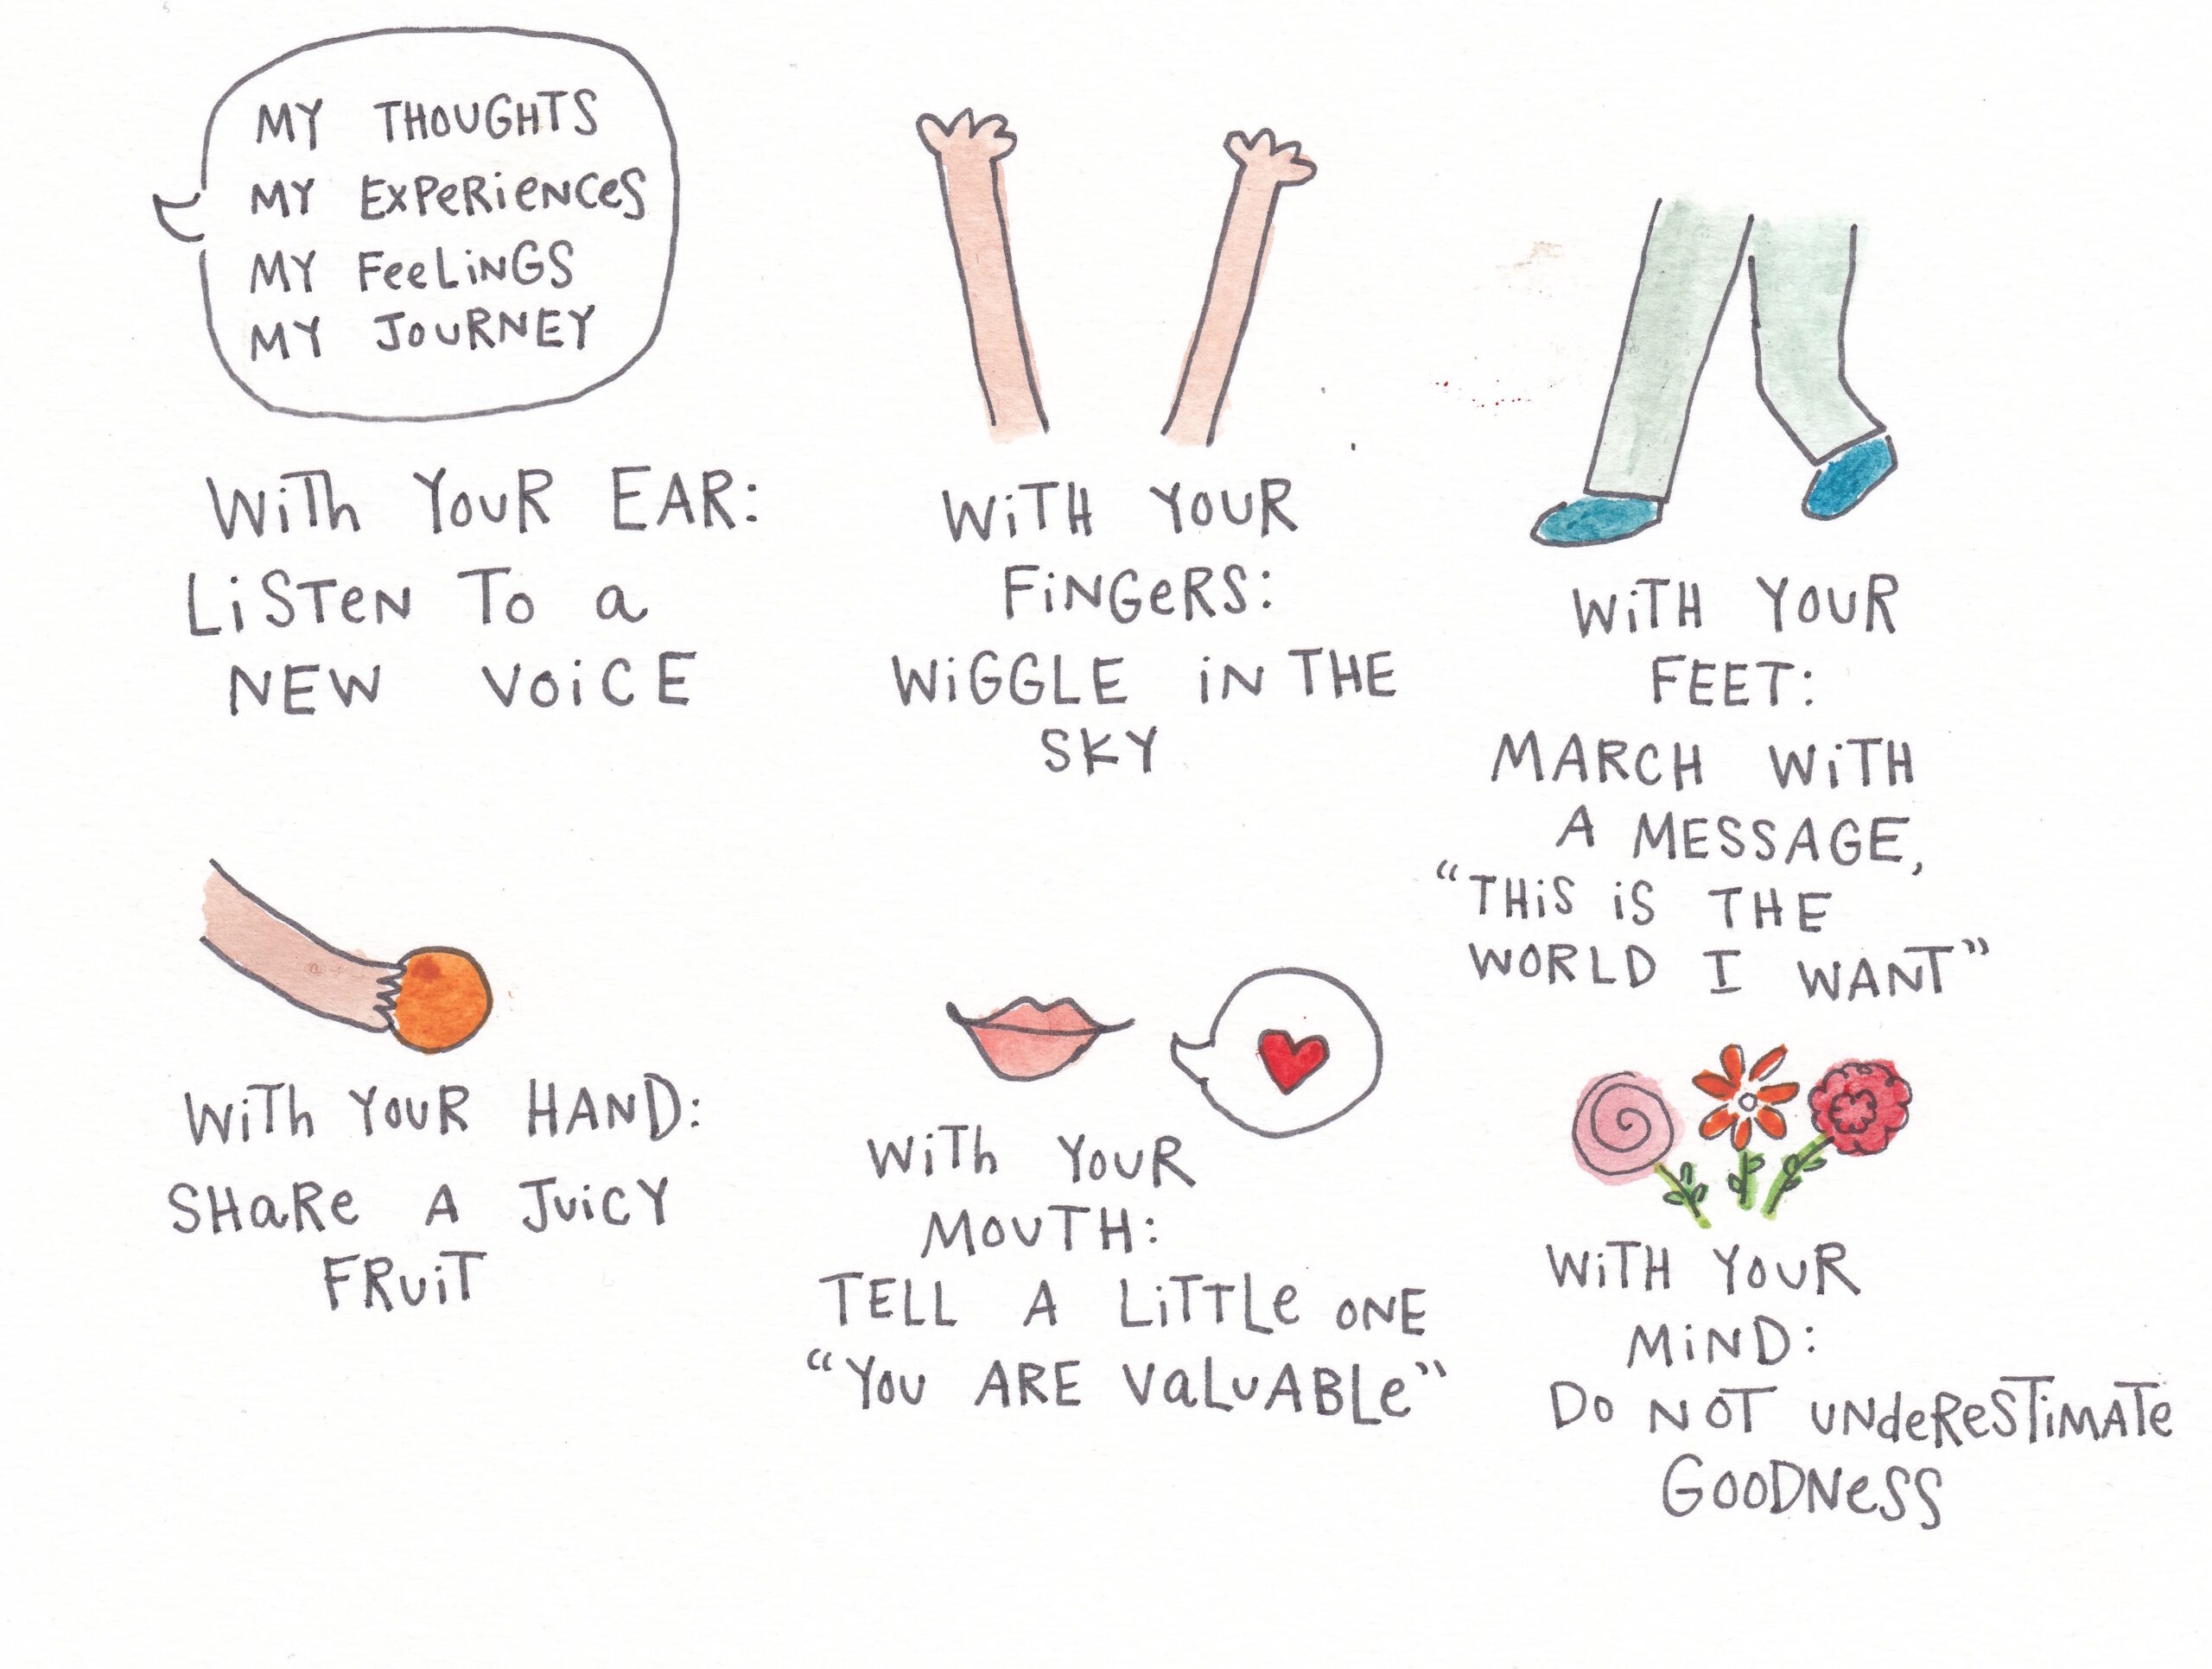 MY THOUGHTS
MY EXPERIENCES
MY FEELINGS
MY JOURNEY
WITH YOUR EAR:
LISTEN TO a
NEW VOICE
WITH YOUR
FINGERS:
WIGGLE IN THE
SKY
WITH YOUR
FEET:
MARCH WITH
A MESSAGE,
“THIS IS THE
WORLD I WANT”
WITH YOUR HAND:
SHARE A JUICY
FRUIT
WITH YOUR
MOUTH:
TELL A LITTLE ONE
“YOU ARE VALUABLE”
WITH YOUR
MIND:
DO NOT UNDERESTIMATE
GOODNESS